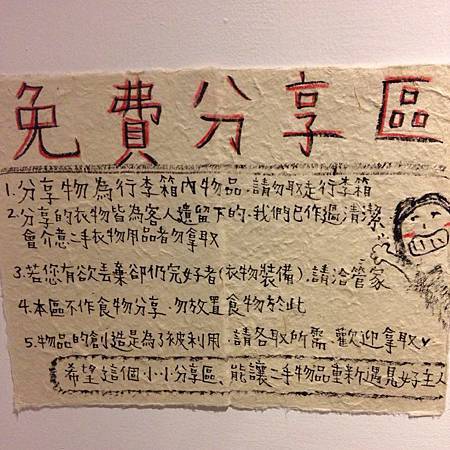 免費分享區
1.分享物為行李箱內物品，請勿取走行李箱
2.分享的衣物皆為客人遺留下的，我們已作過清潔，
會介意二手衣物用品者勿拿取
3.若您有欲丟棄卻仍完好者(衣物裝備)，請洽管家
4.本區不作食物分享，勿放置食物於此
5.物品的創造是為了被利用，請各取所需，歡迎拿取♥
希望這個小小分享區、能讓二手物品重新遇見好主人